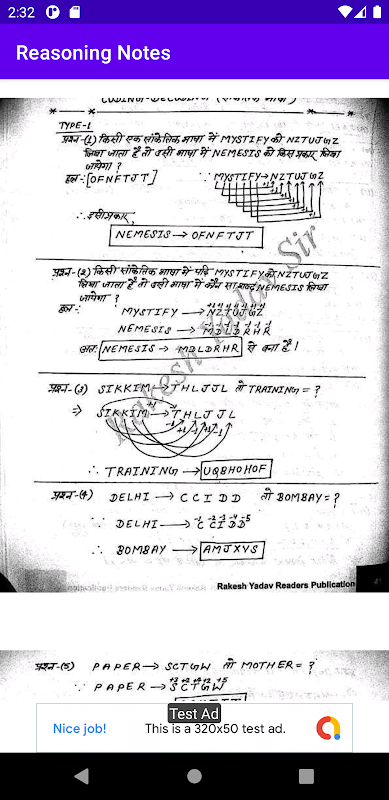 2:32
Reasoning Notes
CODING-DECODING (सांकेतिक भाषा)
TYPE-1
प्रश्न-(1) किसी एक सांकेतिक भाषा में MYSTIFY को NZTUJGZ
लिखा जाता है तो उसी भाषा में NEMESIS को किस प्रकार लिखा
जायेगा ?
हल:- [OFNFTJT] ∵ MYSTIFY→NZTUJGZ
∴ इसी प्रकार,
NEMESIS → OFNFTJT
प्रश्न-(2) किसी सांकेतिक भाषा में यदि MYSTIFY को NZTUJGZ
लिखा जाता है तो उसी भाषा में कौन सा शब्द NEMESIS लिखा
जायेगा ?
हल:- MYSTIFY → NZTUJGZ
NEMESIS → MDLDRHR
अतः NEMESIS → MDLDRHR से बना है।
प्रश्न-(3) SIKKIM → THLJJL तो TRAINING = ?
⇒ SIKKIM → THLJJL
∴ TRAINING → UQBHOHOF
प्रश्न-(4) DELHI → CCIDD तो BOMBAY = ?
∵ DELHI → CCIDD
∴ BOMBAY → AMJXVS
Rakesh Yadav Sir
Rakesh Yadav Readers Publication
प्रश्न-(5) PAPER → SCTGW तो MOTHER = ?
∵ PAPER → SCTGW
Test Ad
Nice job! This is a 320x50 test ad.